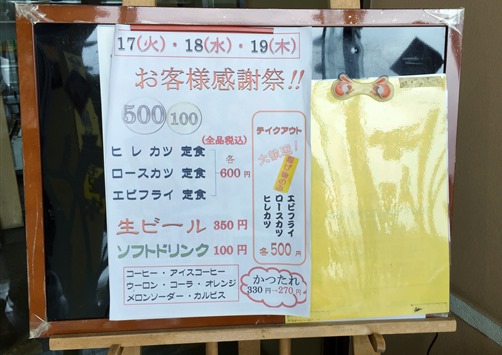 17(火)・18(水)・19(木)
お客様感謝祭!!
500 100
(全品税込)
ヒレカツ 定食
ロースカツ 定食
エビフライ 定食
各600円
生ビール 350円
ソフトドリンク 100円
コーヒー・アイスコーヒー
ウーロン・コーラ・オレンジ
メロンソーダー・カルピス
テイクアウト
大歓迎!
エビフライ
ロースカツ
ヒレカツ
各500円
かつたれ
330円→270円